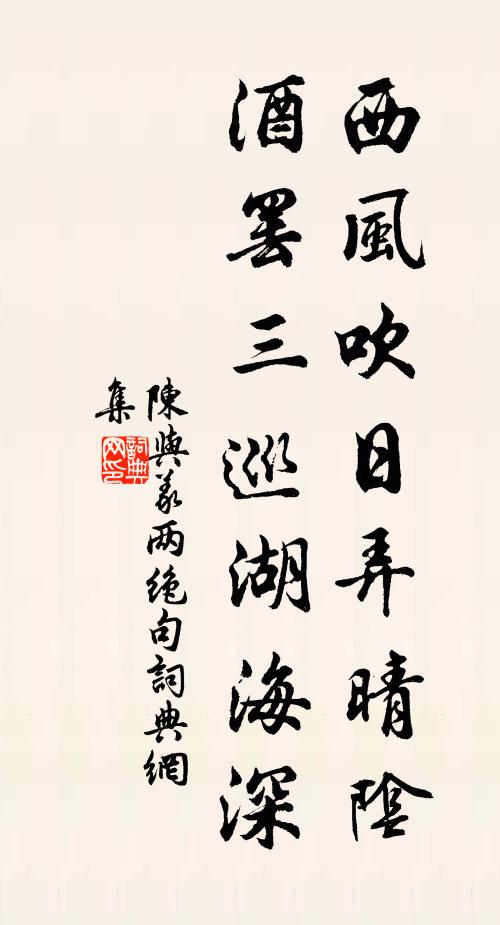 西風吹日弄晴陰
酒罷三巡湖海深
陳與義兩絕句詞典網
集
詞典
网印